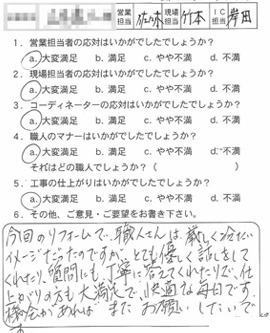 営業担当 佐々木 現場担当 竹本 IC担当 岸田
1．営業担当者の応対はいかがでしたでしょうか？
a.大変満足 b. 満足 c. やや不満 d. 不満
2．現場担当者の応対はいかがでしたでしょうか？
a.大変満足 b. 満足 c. やや不満 d. 不満
3．コーディネーターの応対はいかがでしたでしょうか？
a.大変満足 b. 満足 c. やや不満 d. 不満
4．職人のマナーはいかがでしたでしょうか？
a.大変満足 b. 満足 c. やや不満 d. 不満
それはどの職人でしょうか？（　　　）
5．工事の仕上がりはいかがでしたでしょうか？
a.大変満足 b. 満足 c. やや不満 d. 不満
6．その他、ご意見・ご要望をお書き下さい。
今回のリフォームで、職人さんは厳しく冷たい
イメージだったのですが、とても優しく話しをして
くれたり、質問にも丁寧に答えてくれたりで、仕
上がりの方も大満足で、快適な毎日です。
機会があれば、またお願いしたいで
す。